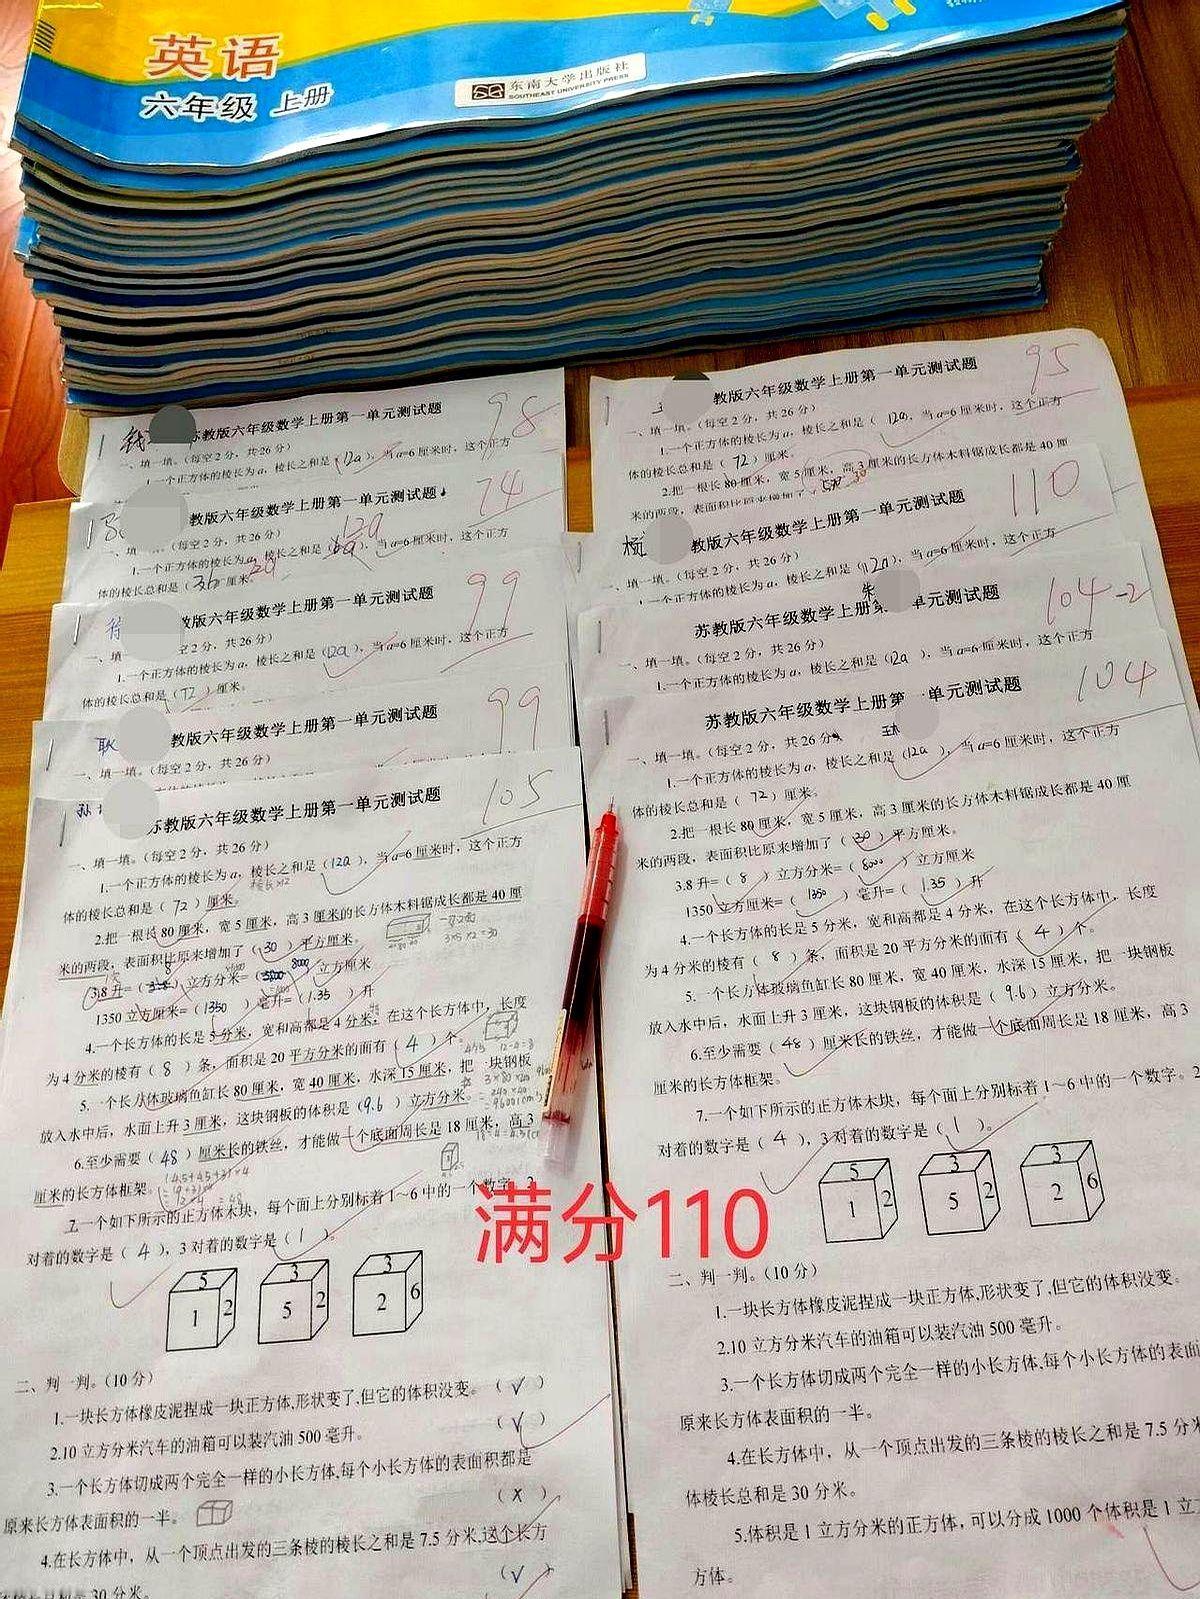 英语
六年级 上册
东南大学出版社
SOUTHEAST UNIVERSITY PRESS
钱 苏教版六年级数学上册第一单元测试题 98
一、填一填。(每空2分，共26分)
1.一个正方体的棱长为a，棱长之和是(12a)，当a=6厘米时，这个正方
教版六年级数学上册第一单元测试题 74
(每空2分，共26分)
12a
1.一个正方体的棱长为a，棱长之和是( )，当a=6厘米时，这个正方
体的棱长总和是(36)厘米
教版六年级数学上册第一单元测试题 99
一、填 空2分，共26分)
1.一个正方体的棱长为a，棱长之和是(12a)，当a=6厘米时，这个正方
体的棱长总和是(72)厘米。
耿 教版六年级数学上册第一单元测试题 99
一、填一填。(每空2分，共26分)
孙 苏教版六年级数学上册第一单元测试题 105
一、填一填。(每空2分，共26分)
1.一个正方体的棱长为a，棱长之和是(12a)，当a=6厘米时，这个正方
体的棱长总和是(72)厘米。
2.把一根长80厘米，宽5厘米，高3厘米的长方体木料锯成长都是40厘
米的两段，表面积比原来增加了(30)平方厘米。
3×5×2=30
3.8升=( 8 )立方分米=( 8000 )立方厘米
1350立方厘米=(1350)毫升=(1.35)升
4.一个长方体的长是5分米，宽和高都是4分米，在这个长方体中，长度
为4分米的棱有(8)条，面积是20平方分米的面有(4)个。
5.一个长方体玻璃鱼缸长80厘米，宽40厘米，水深15厘米，把一块钢板
放入水中后，水面上升3厘米，这块钢板的体积是(9.6)立方分米。
6.至少需要(48)厘米长的铁丝，才能做一个底面周长是18厘米，高3
厘米的长方体框架。
7.一个如下所示的正方体木块，每个面上分别标着1~6中的一个数字。2
对着的数字是(4)，3对着的数字是(1)。
5 1 2 3 5 2 3 2 6
二、判一判。(10分)
1.一块长方体橡皮泥捏成一块正方体,形状变了,但它的体积没变。(√)
2.10立方分米汽车的油箱可以装汽油500毫升。(√)
3.一个长方体切成两个完全一样的小长方体,每个小长方体的表面积都是
原来长方体表面积的一半。(×)
4.在长方体中，从一个顶点出发的三条棱的棱长之和是7.5分米,这个长方
30分米。(√)
教版六年级数学上册第一单元测试题 95
一、填一填。(每空2分，共26分)
1.一个正方体的棱长为a，棱长之和是(12a)，当a=6厘米时，这个正方
体的棱长总和是(72)厘米。
2.把一根长80厘米，宽5厘米，高3厘米的长方体木料锯成长都是40厘
米的两段，表面积比原来增加了
杨 教版六年级数学上册第一单元测试题 110
一、填一填。(每空2分，共26分)
1.一个正方体的棱长为a，棱长之和是(12a)，当a=6厘米时，这个正方
朱
苏教版六年级数学上册第一单元测试题 104-2
一、填一填。(每空2分，共26分)
1.一个正方体的棱长为a，棱长之和是(12a)，当a=6厘米时，这个正方
苏教版六年级数学上册第一单元测试题 104
一、填一填。(每空2分，共26分)
1.一个正方体的棱长为a，棱长之和是(12a)，当a=6厘米时，这个正方
体的棱长总和是(72)厘米。
2.把一根长80厘米，宽5厘米，高3厘米的长方体木料锯成长都是40厘
米的两段，表面积比原来增加了(30)平方厘米。
3.8升=(8)立方分米=(8000)立方厘米
1350立方厘米=(1350)毫升=(1.35)升
4.一个长方体的长是5分米，宽和高都是4分米，在这个长方体中，长度
为4分米的棱有(8)条，面积是20平方分米的面有(4)个。
5.一个长方体玻璃鱼缸长80厘米，宽40厘米，水深15厘米，把一块钢板
放入水中后，水面上升3厘米，这块钢板的体积是(9.6)立方分米。
6.至少需要(48)厘米长的铁丝，才能做一个底面周长是18厘米，高3
厘米的长方体框架。
7.一个如下所示的正方体木块，每个面上分别标着1~6中的一个数字。2
对着的数字是(4)，3对着的数字是(1)。
5 1 2 3 5 2 3 2 6
二、判一判。(10分)
1.一块长方体橡皮泥捏成一块正方体,形状变了,但它的体积没变。
2.10立方分米汽车的油箱可以装汽油500毫升。
3.一个长方体切成两个完全一样的小长方体,每个小长方体的表面
原来长方体表面积的一半。
4.在长方体中，从一个顶点出发的三条棱的棱长之和是7.5分米
体棱长总和是30分米。
5.体积是1立方分米的正方体，可以分成1000个体积是1立
方体。
满分110